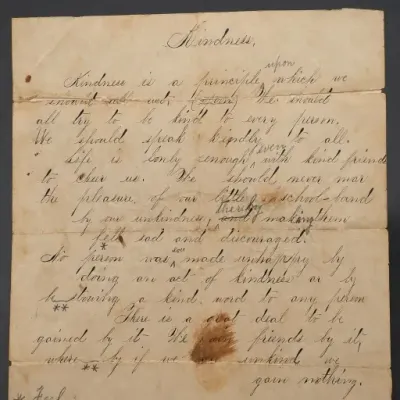 Kindness.
upon
Kindness is a principle which we
should all act
We should
all try to be kind to every person.
We should speak kindly to all.
even
Life is lonely enough with kind friends
to cheer us. We should never mar
the pleasure of our little school-band
thereby
by our unkindness, and making them
felt sad and discouraged.
*
ever
No person was made unhappy by
doing an act of kindness or by
b stowing a kind word to any person
**
There is a great deal to be
gained by it. We gain friends by it,
where by if we are unkind we
**
gain nothing.
* Feel